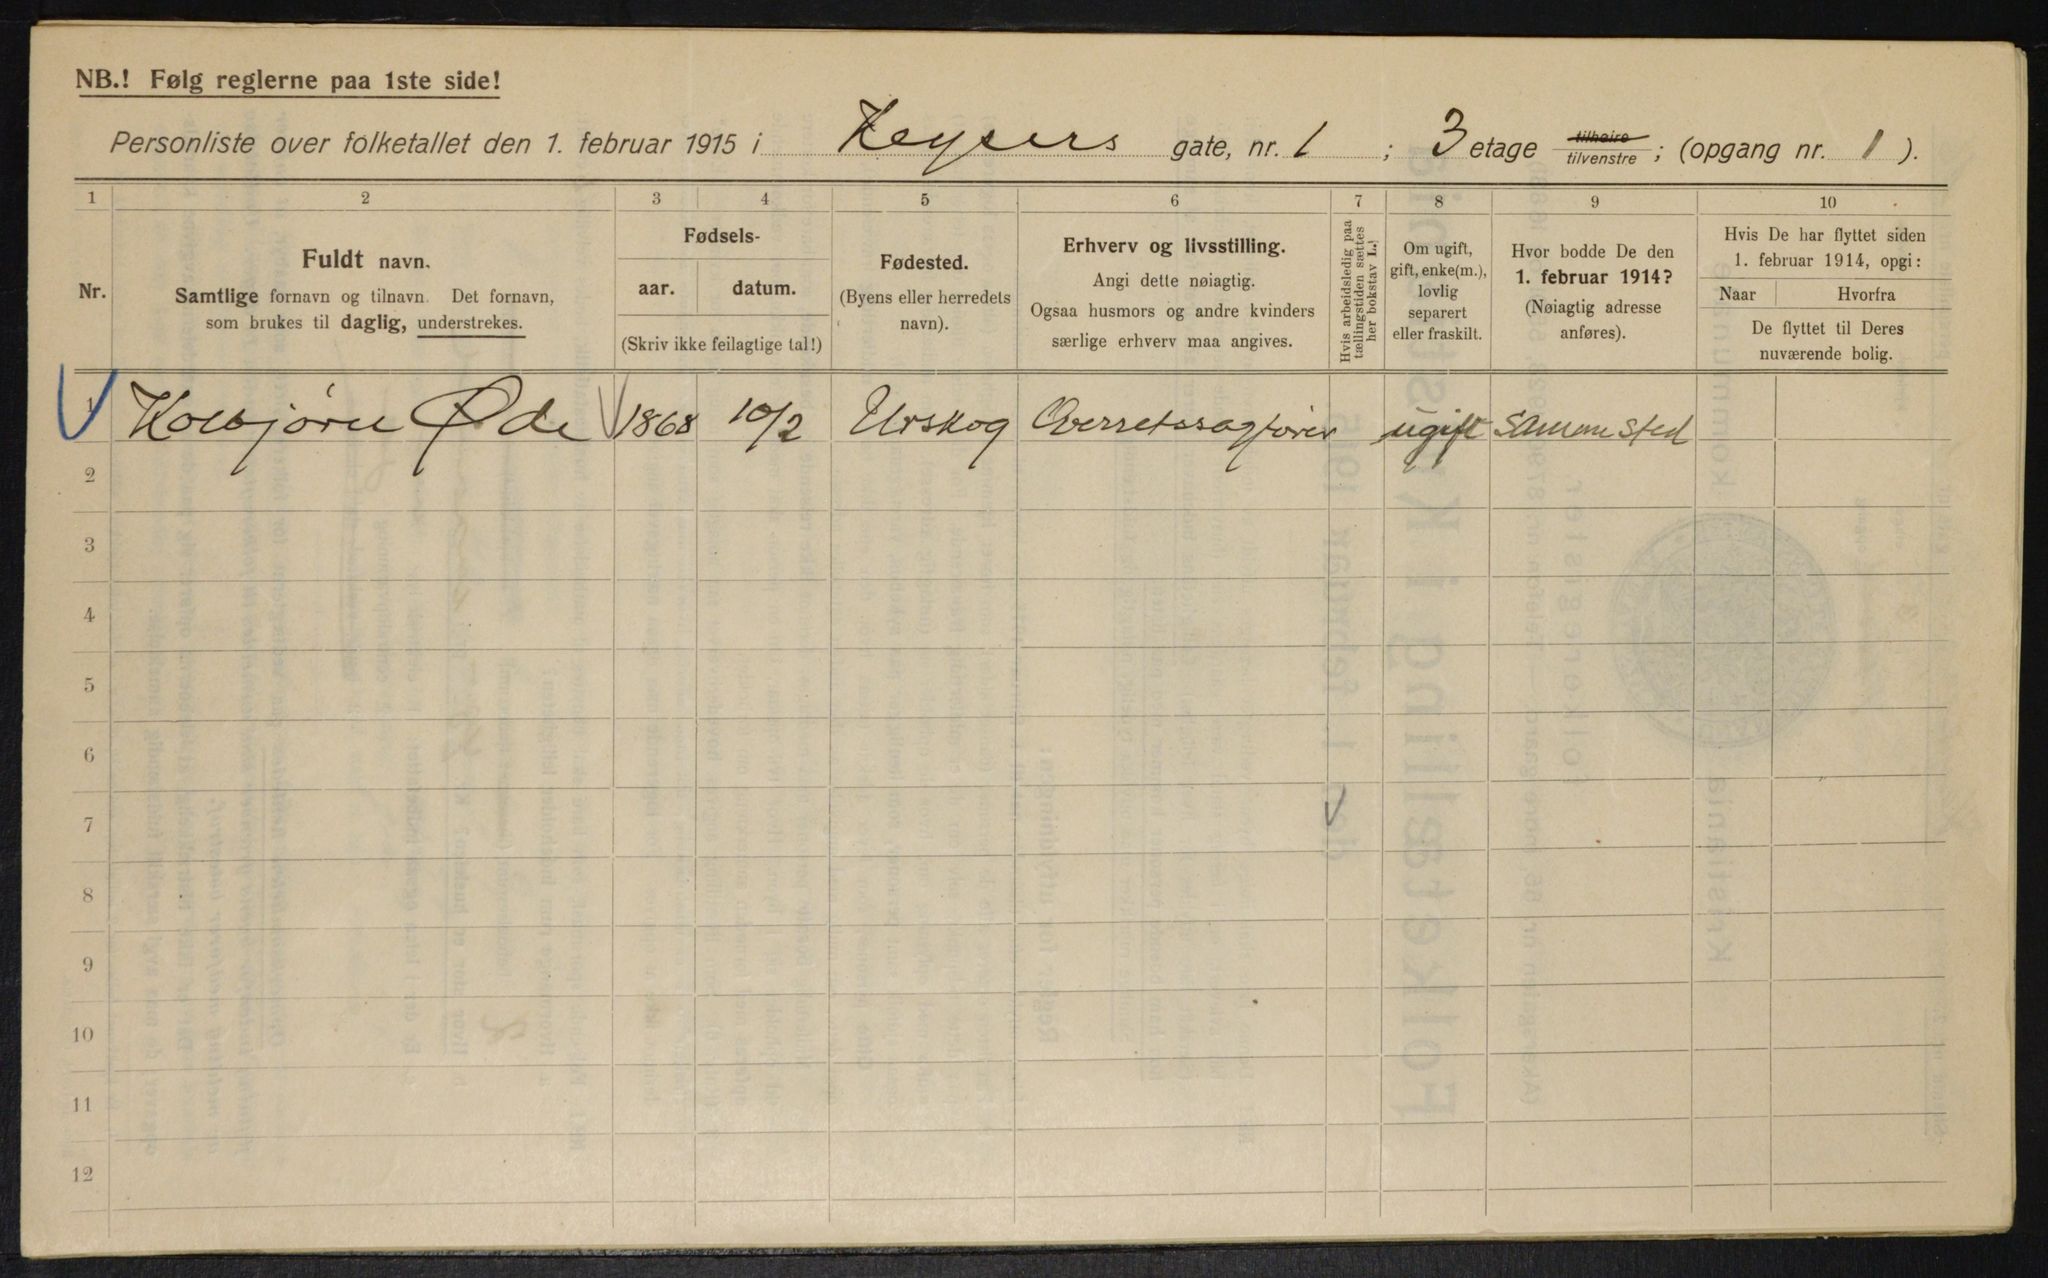 NB.! Følg reglerne paa 1ste side!
Personliste over folketallet den 1. februar 1915 i Keysers gate, nr. 1 ; 3 etage tilhøire tilvenstre ; (opgang nr. 1 ).
1 2 3 4 5 6 7 8 9 10
Nr.
Fuldt navn.
Samtlige fornavn og tilnavn. Det fornavn,
som brukes til daglig, understrekes.
Fødsels-
aar. datum.
(Skriv ikke feilagtige tal!)
Fødested.
(Byens eller herredets
navn).
Erhverv og livsstilling.
Angi dette nøiagtig.
Ogsaa husmors og andre kvinders
særlige erhverv maa angives.
Hvis arbeidsledig paa
tællingstiden sættes
her bokstav L.!
Om ugift,
gift, enke(m.),
lovlig
separert
eller fraskilt.
Hvor bodde De den
1. februar 1914?
(Nøiagtig adresse
anføres).
Hvis De har flyttet siden
1. februar 1914, opgi:
Naar Hvorfra
De flyttet til Deres
nuværende bolig.
1 Kolbjørn Øde 1868 10/2 Urskog Overretssagfører ugift sammested
2
3
4
5
6
7
8
9
10
11
12